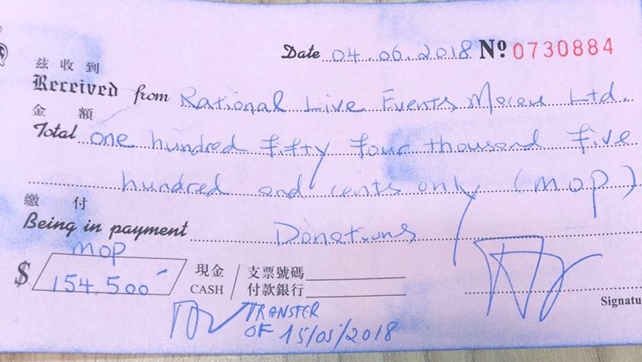 Date 04.06.2018 Nº 0730884
茲收到
Received from Rational Live Events Macau Ltd.
金額
Total one hundred fifty four thousand five
hundred and cents only (MOP)
繳付
Being in payment Donations
MOP
$ 154.500 現金 CASH 支票號碼 付款銀行
TRANSFER
OF 15/05/2018
Signatu